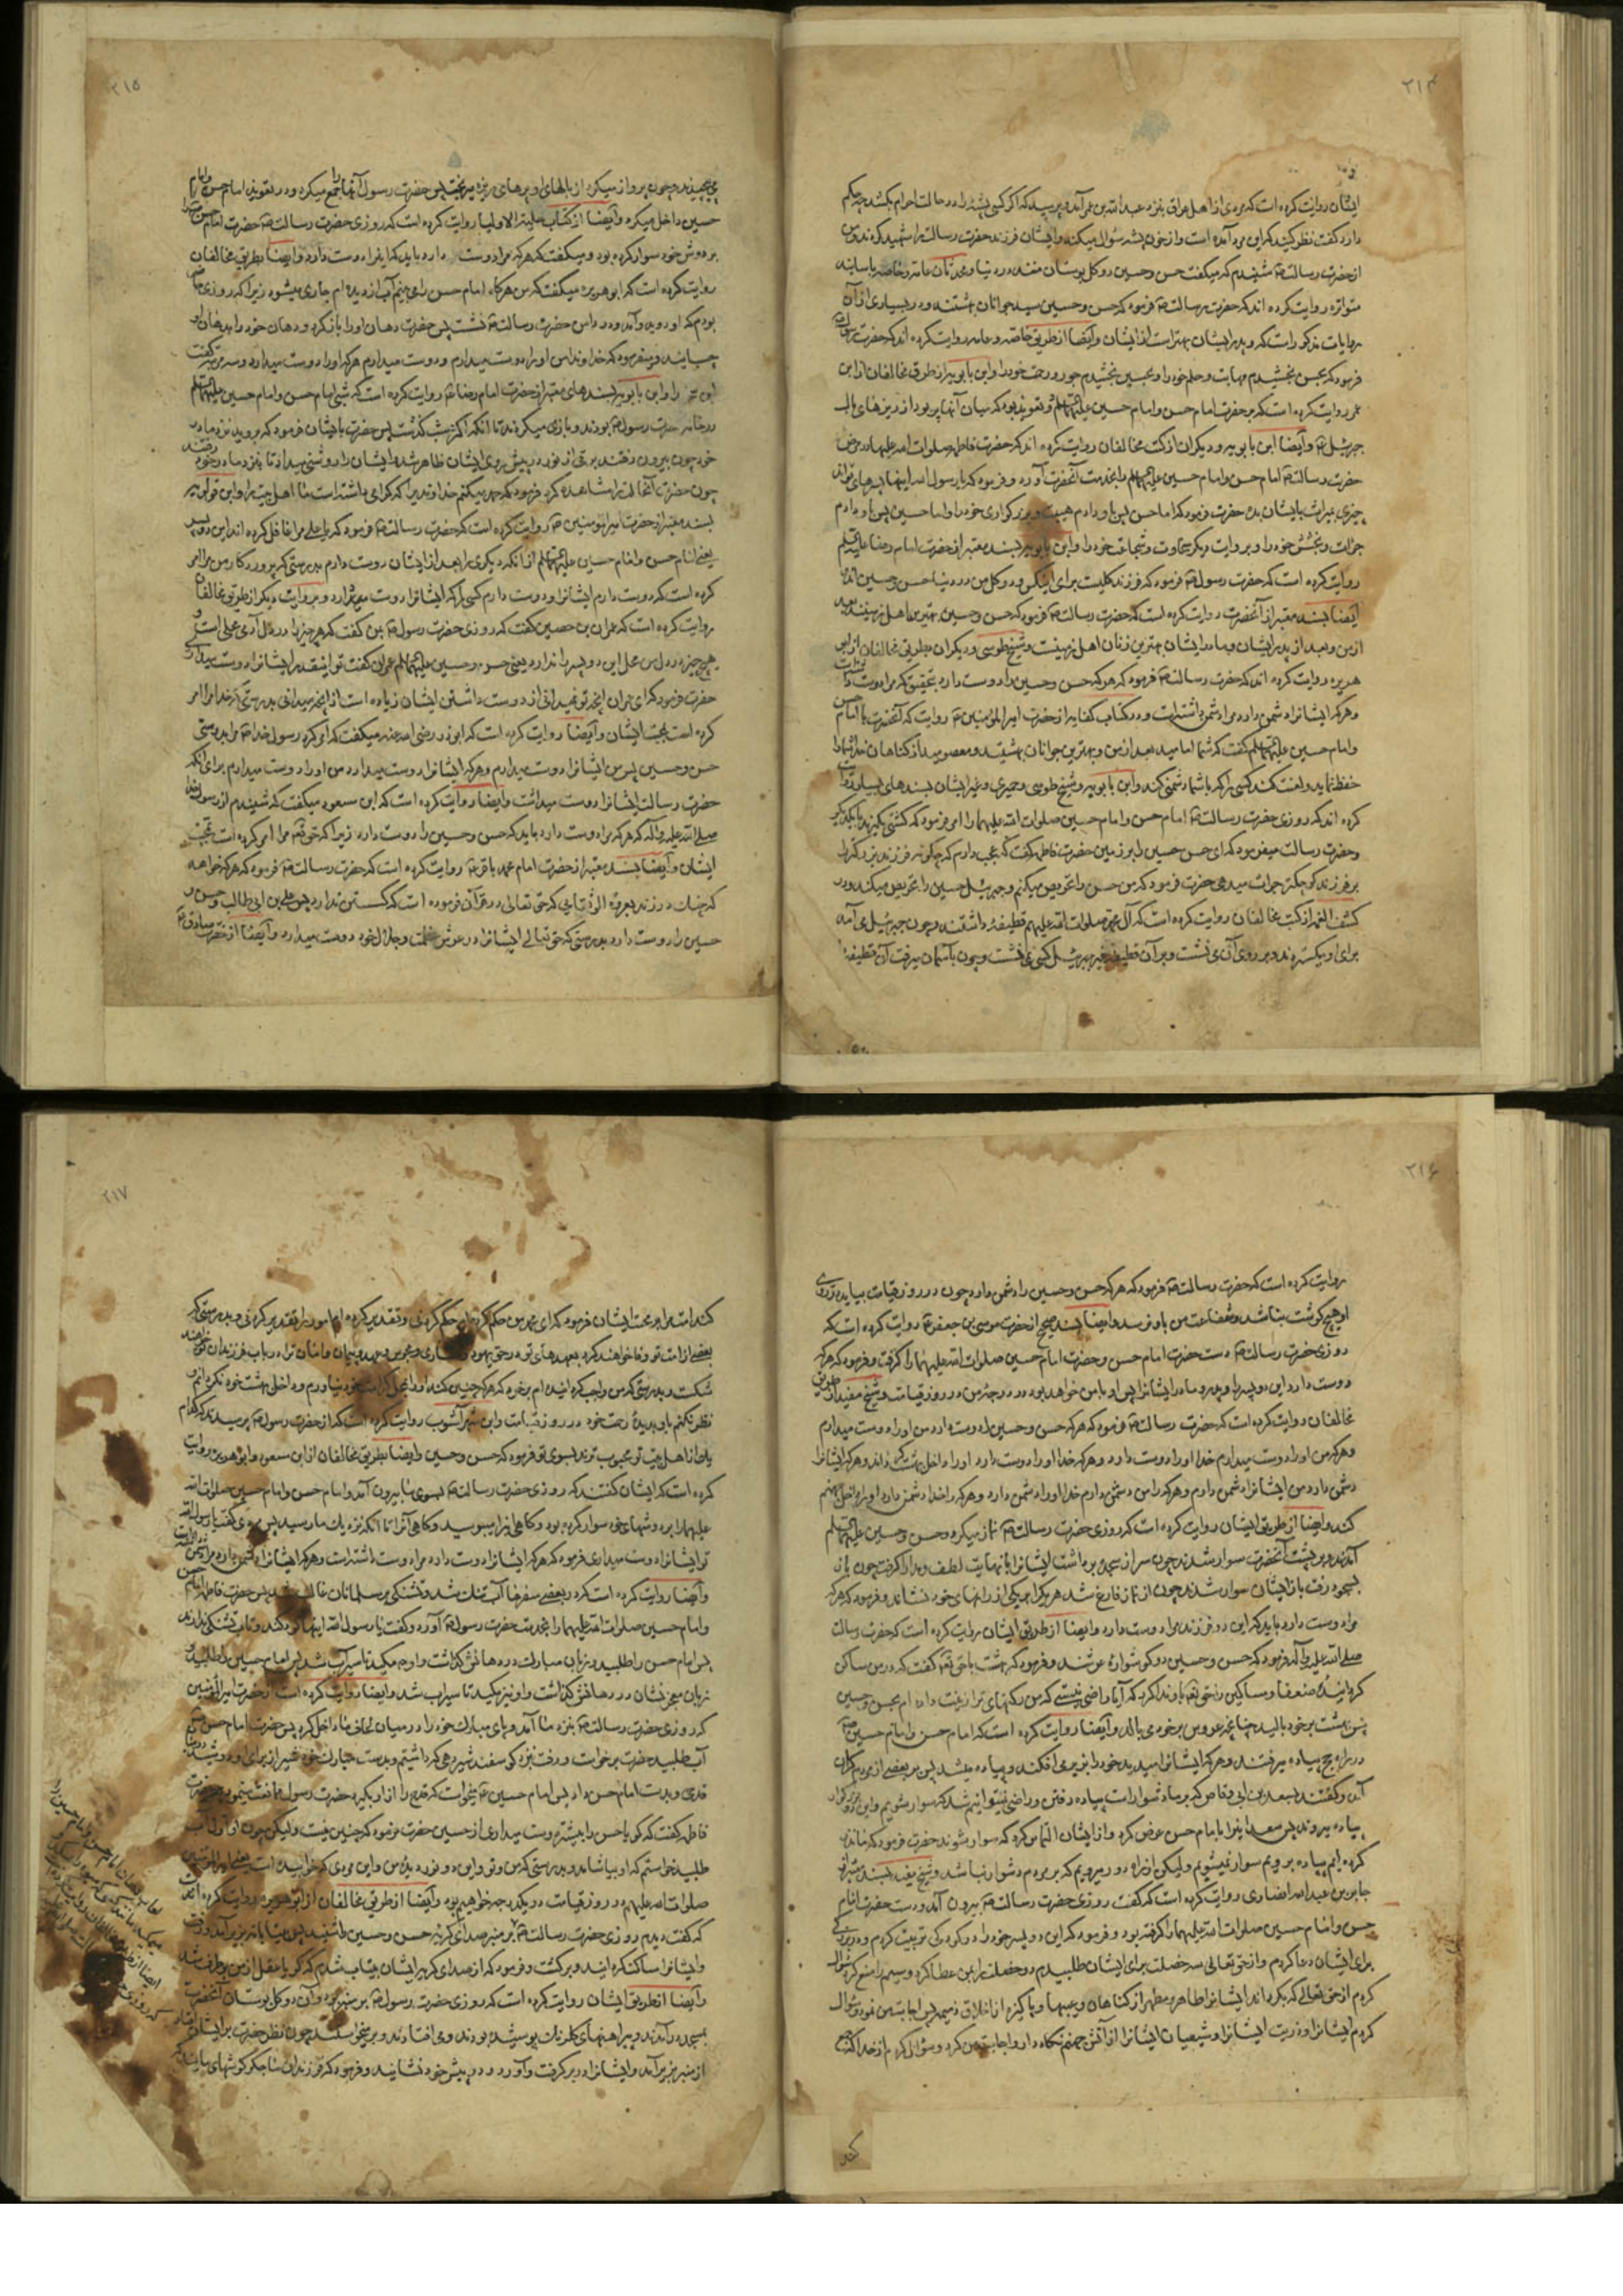 ٢١۴
ایشان روایت کرده است که مردی از اهل عراق بنزد عبدالله بن عمر آمد و پرسید که اگر کسی پشه را در حالت احرام بکشد چه حکم
دارد گفت نظر کنید که این مرد آمده است و از خون پشه سؤال میکند و ایشان فرزند حضرت رسالت را شهید کردند و من
از حضرت رسالت شنیدم که میگفت حسن و حسین دو گل بوستان منند در دنیا و محدثان عامه و خاصه باسانید
متواتره روایت کرده اند که حضرت رسالت فرمود که حسن و حسین سید جوانان بهشتند و در بسیاری از آن
روایات مذکور است که و پدر ایشان بهتر است از ایشان و ایضا از طریق خاصه و عامه روایت کرده اند که حضرت رسول
فرمود که بحسن بخشیدم مهابت و حلم خود را و بحسین بخشیدم جود و رحمت خود را و ابن بابویه از طرق مخالفان از ابن
عمر روایت کرده است که بر حضرت امام حسن و امام حسین علیهما السلام دو تعویذ بود که میان آنها پر بود از ریزهای بال
جبرئیل و ایضا ابن بابویه و دیگران از کتب مخالفان روایت کرده اند که حضرت فاطمه صلوات الله علیها در مرض
حضرت رسالت امام حسن و امام حسین علیهما السلام را بخدمت آنحضرت آورد و فرمود که یا رسول الله اینها پسرهای تواند
چیزی بمیراث بایشان بده حضرت فرمود که اما حسن پس باو دادم هیبت و بزرگواری خود را و اما حسین پس باو دادم
جرأت و بخشش خود را و بروایت دیگر سخاوت و شجاعت خود را و ابن بابویه بسند معتبر از حضرت امام رضا علیه السلام
روایت کرده است که حضرت رسول فرمود که فرزند گلیست برای و دو گل من در دنیا حسن و حسین اند
ایضا بسند معتبر از آنحضرت روایت کرده است که حضرت رسالت فرمود که حسن و حسین بهترین اهل زمینند بعد
از من و بعد از پدر ایشان و مادر ایشان بهترین زنان اهل زمینست و شیخ طوسی و دیگران بطریق مخالفان از ابو
هریره روایت کرده اند که حضرت رسالت فرمود که هر که حسن و حسین را دوست دارد بتحقیق که مرا دوست داشته است
و هر که ایشانرا دشمن دارد مرا دشمن داشته است و در کتاب کفایه از حضرت امیرالمؤمنین روایت که آنحضرت با امام حسن
و امام حسین علیهما السلام گفت که شما امامید بعد از من و بهترین جوانان بهشتید و معصومید از گناهان خدا شما را
حفظ نماید و لعنت کند کسی را که با شما دشمنی کند و ابن بابویه و شیخ طوسی و حمیری و غیر ایشان بسندهای بسیار روایت
کرده اند که روزی حضرت رسالت امام حسن و امام حسین صلوات الله علیهما را امر فرمود که کشتی بگیرند با یکدیگر
و حضرت رسالت میفرمود که ای حسن حسین را بر زمین حضرت فاطمه گفت که عجب دارم که چگونه فرزند بزرگ را
بر فرزند کوچکتر جرأت میدهی حضرت فرمود که من حسن را تحریص میکنم و جبرئیل حسین را تحریص میکند و در
کشف الغمه از کتب مخالفان روایت کرده است که آل محمد صلوات الله علیهم قطیفهٔ داشتند و چون جبرئیل می آمد
برای او میگستردند و بر روی آن می نشست و بر آن قطیفه بغیر جبرئیل کسی نمی نشست و چون بآسمان میرفت آن قطیفه را
٢١۵
می پیچیدند و چون پرواز میکرد از بالهای او پرهای ریزه میریخت پس حضرت رسول آنها را جمع میکرد و در تعویذ امام حسن و امام
حسین داخل میکرد و ایضا از کتاب حلیة الاولیا روایت کرده است که روزی حضرت رسالت حضرت امام حسن را
بر دوش خود سوار کرده بود و میگفت که هر که مرا دوست دارد باید که اینرا دوست دارد و ایضا بطریق مخالفان
روایت کرده است که ابو هریره میگفت که من هر گاه امام حسن را می بینم آب از دیده ام جاری میشود زیرا که روزی
بودم که او دوید و آمد و در دامن حضرت رسالت نشست پس حضرت دهان او را باز کرد و دهان خود را بدهان او
چسبانید و میفرمود که خداوندا من او را دوست میدارم و دوست میدارم هر که او را دوست میدارد و سه مرتبه گفت
این را و ابن بابویه بسندهای معتبر از حضرت امام رضا روایت کرده است که شبی امام حسن و امام حسین علیهما السلام
در خانه حضرت رسول بودند و بازی میکردند تا آنکه اکثر شب گذشت پس حضرت بایشان فرمود که بروید بنزد مادر
خود چون بیرون رفتند برقی از نور در پیش روی ایشان ظاهر شد و ایشان را روشنی میداد تا بنزد مادر خود رفتند
چون حضرت آنحالت را مشاهده کرد فرمود که حمد میکنم خداوندیرا که گرامی داشته است ما اهل بیت را و ابن قولویه
بسند معتبر از حضرت امیرالمؤمنین روایت کرده است که حضرت رسالت فرمود که یا علی مرا غافل کرده اند این دو پسر
یعنی امام حسن و امام حسین علیهما السلام از آنکه دیگری را بعد از ایشان دوست دارم بدرستیکه پروردگار من مرا امر
کرده است که دوست دارم ایشانرا و دوست دارم کسی را که ایشانرا دوست میدارد و بروایت دیگر از طریق مخالفان
روایت کرده است که عمران بن حصین گفت که روزی حضرت رسول بمن گفت که هر چیز را در دل آدمی محلی است و
هیچ چیز در دل من محل این دو پسر را ندارد یعنی حسن و حسین علیهما السلام عمران گفت تو اینقدر ایشانرا دوست میداری
حضرت فرمود که ای عمران آنچه تو نمیدانی از دوست داشتن ایشان زیاده است از آنچه میدانی بدرستیکه خدا مرا امر
کرده است بمحبت ایشان و ایضا روایت کرده است که ابوذر رضی الله عنه میگفت که امر کرد رسول خدا مرا بدوستی
حسن و حسین پس من ایشانرا دوست میدارم و هر که ایشانرا دوست میدارد من او را دوست میدارم برای آنکه
حضرت رسالت ایشانرا دوست میداشت و ایضا روایت کرده است که ابن مسعود میگفت که شنیدم از رسول خدا
صلی الله علیه وآله که هر که مرا دوست دارد باید که حسن و حسین را دوست دارد زیرا که حق تعالی مرا امر کرده است بمحبت
ایشان و ایضا بسند معتبر از حضرت امام محمد باقر روایت کرده است که حضرت رسالت فرمود که هر که خواهد
که چنک در زند بعروة الوثقائی که حق تعالی در قرآن فرموده است که گسستن ندارد پس علی بن ابی طالب و حسن و
حسین را دوست دارد بدرستی که حق تعالی ایشانرا در عرش عظمت و جلال خود دوست میدارد و ایضا از حضرت صادق
٢١۶
روایت کرده است که حضرت رسالت فرمود که هر که حسن و حسین را دشمن دارد چون در روز قیامت بیاید در روی
او هیچ گوشت نباشد و شفاعت من باو نرسد و ایضا بسند صحیح از حضرت موسی بن جعفر روایت کرده است که
روزی حضرت رسالت دست حضرت امام حسن و حضرت امام حسین صلوات الله علیهما را گرفت و فرمود که هر که
دوست دارد این دو پسر را و پدر و مادر ایشانرا پس او با من خواهد بود در درجه من در روز قیامت و شیخ مفید از طریق
مخالفان روایت کرده است که حضرت رسالت فرمود که هر که حسن و حسین را دوست دارد من او را دوست میدارم
و هر که من او را دوست میدارم خدا او را دوست دارد و هر که خدا او را دوست دارد او را داخل بهشت گرداند و هر که ایشانرا
دشمن دارد من ایشانرا دشمن دارم و هر که را من دشمن دارم خدا او را دشمن دارد و هر که را خدا دشمن دارد او را داخل جهنم
کند و ایضا از طریق ایشان روایت کرده است که روزی حضرت رسالت نماز میکرد و حسن و حسین علیهما السلام
آمدند و بر پشت آنحضرت سوار شدند چون سر از سجده برداشت ایشانرا بانهایت لطف و مدارا گرفت چون باز
بسجود رفت باز ایشان سوار شدند چون از نماز فارغ شد هر یک را بر یکی از رانهای خود نشاند و فرمود که هر که
مرا دوست دارد باید که این دو فرزند مرا دوست دارد و ایضا از طریق ایشان روایت کرده است که حضرت رسالت
صلی الله علیه وآله فرمود که حسن و حسین دو گوشواره عرشند و فرمود که بهشت با حق تعالی گفت که در من ساکن
گردانیدهٔ ضعفا و مساکین را حق تعالی باو ندا کرد که آیا راضی نیستی که من رکنهای ترا زینت داده ام بحسن و حسین
پس بهشت بر خود بالید چنانچه عروس بر خود می بالد و ایضا روایت کرده است که امام حسن و امام حسین
در راه حج پیاده میرفتند و هر که ایشانرا میدید خود را بزیر می افکند و پیاده میشد پس بر بعضی از مردم گران
آمد و گفتند بسعد بن ابی وقاص که بر ما دشوار است پیاده رفتن و راضی نمیتوانیم شد که سوار شویم و این دو بزرگوار
پیاده میروند پس سعد اینرا بامام حسن عرض کرد و از ایشان التماس کرد که سوار شوند حضرت فرمود که ما نذر
کرده ایم پیاده برویم سوار نمیشویم ولیکن از راه دور میرویم که بر مردم دشوار نباشد و شیخ مفید بسند معتبر از
جابر بن عبدالله انصاری روایت کرده است که گفت روزی حضرت رسالت بیرون آمد و دست حضرت امام
حسن و امام حسین صلوات الله علیهما را گرفته بود و فرمود که این دو پسر خود را در کودکی تربیت کردم و در بزرگی
برای ایشان دعا کردم و از حق تعالی سه خصلت برای ایشان طلبیدم دو خصلت را بمن عطا کرد و سیم را منع کرد سؤال
کردم از حق تعالی که بگرداند ایشانرا طاهر و مطهر از گناهان و عیبها و پاکیزه از اخلاق ذمیمه پس اجابت من نمود و سؤال
کردم ایشانرا و ذریت ایشانرا و شیعیان ایشانرا از آتش جهنم نگاه دارد اجابت من کرد و سؤال کردم از خدا که جمع
کند
٢١٧
کند امت مرا بر محبت ایشان فرمود که ای محمد من حکم کرده ام حکم کردنی و تقدیر کرده ام امور را تقدیر کردنی و بدرستی که
بعضی از امت تو وفا خواهند کرد بعهدهای تو در حق یهود و نصاری و مجوس و عهد و پیمان و امان ترا در باب فرزندان تو خواهند
شکست و بدرستی که من واجب گردانیده ام بر خود که هر که چنین کند او را بمحل کرامت خود نیاورم و داخل بهشت خود نگردانم و
نظر نکنم باو بدیدهٔ رحمت خود در روز قیامت و ابن شهرآشوب روایت کرده است که از حضرت رسول پرسیدند که کدام
یک از اهل بیت تو محبوب ترند بسوی تو فرمود که حسن و حسین و ایضا بطریق مخالفان از ابن مسعود و ابو هریره روایت
کرده است که ایشان گفتند که روزی حضرت رسالت بسوی ما بیرون آمد و امام حسن و امام حسین صلوات الله
علیهما را بر دوشهای خود سوار کرده بود و گاهی اینرا میبوسید و گاهی آنرا تا آنکه نزدیک ما رسید پس مردی گفت یا رسول الله
تو ایشانرا دوست میداری فرمود که هر که ایشانرا دوست دارد مرا دوست داشته است و هر که ایشانرا دشمن دارد مرا دشمن داشته است
و ایضا روایت کرده است که در بعضی سفرها آب تنک شد و تشنگی بر مسلمانان غالب شد پس حضرت فاطمه امام حسن
و امام حسین صلوات الله علیهما را بخدمت حضرت رسول آورد و گفت یا رسول الله اینها کودکند و تاب تشنگی ندارند
پس امام حسن را طلبید و زبان مبارک در دهانش گذاشت و او می مکید تا سیراب شد پس امام حسین را طلبید و
زبان معجز نشان در دهانش گذاشت و او نیز مکید تا سیراب شد و ایضا روایت کرده است از حضرت امیرالمؤمنین
که روزی حضرت رسالت بنزد ما آمد و پای مبارک خود را در میان لحاف ما داخل کرد پس حضرت امام حسن
آب طلبید حضرت برخواست و رفت بنزد گوسفند شیردهی که داشتیم و بدست مبارک خود شیر از برای او دوشید
قدحی و بدست امام حسن داد پس امام حسین میخواست که قدح را از او بگیرد حضرت رسول ممانعت مینمود حضرت
فاطمه گفت که گویا حسن را بیشتر دوست میداری از حسین حضرت فرمود که چنین نیست ولیکن چون او اول آب
طلبید خواستم که او بیاشامد و بدرستی که من و تو و این دو فرزند من و این مردی که خوابیده است یعنی امیرالمؤمنین
صلوات الله علیهم در روز قیامت در یک درجه خواهیم بود و ایضا از طریق مخالفان از ابو هریره روایت کرده اند
که گفت دیدم روزی حضرت رسالت بر منبر صدای گریهٔ حسن و حسین را شنید پس بیتابانه بزیر آمد و رفت
و ایشانرا ساکت گردانید و برگشت و فرمود که از صدای گریه ایشان بیتاب شدم که گویا عقل از من برطرف شد
و ایضا از طریق ایشان روایت کرده است که روزی حضرت رسول بر منبر بود و آن دو گل بوستان آنحضرت
بمسجد درآمدند و پیراهنهای گلرنک پوشیده بودند و می افتادند و برمیخواستند چون نظر حضرت بر ایشان افتاد
از منبر بزیر آمد و ایشانرا در بر گرفت و آورد و در پیش خود نشانید و فرمود که فرزندان ما جگر گوشهای مایند